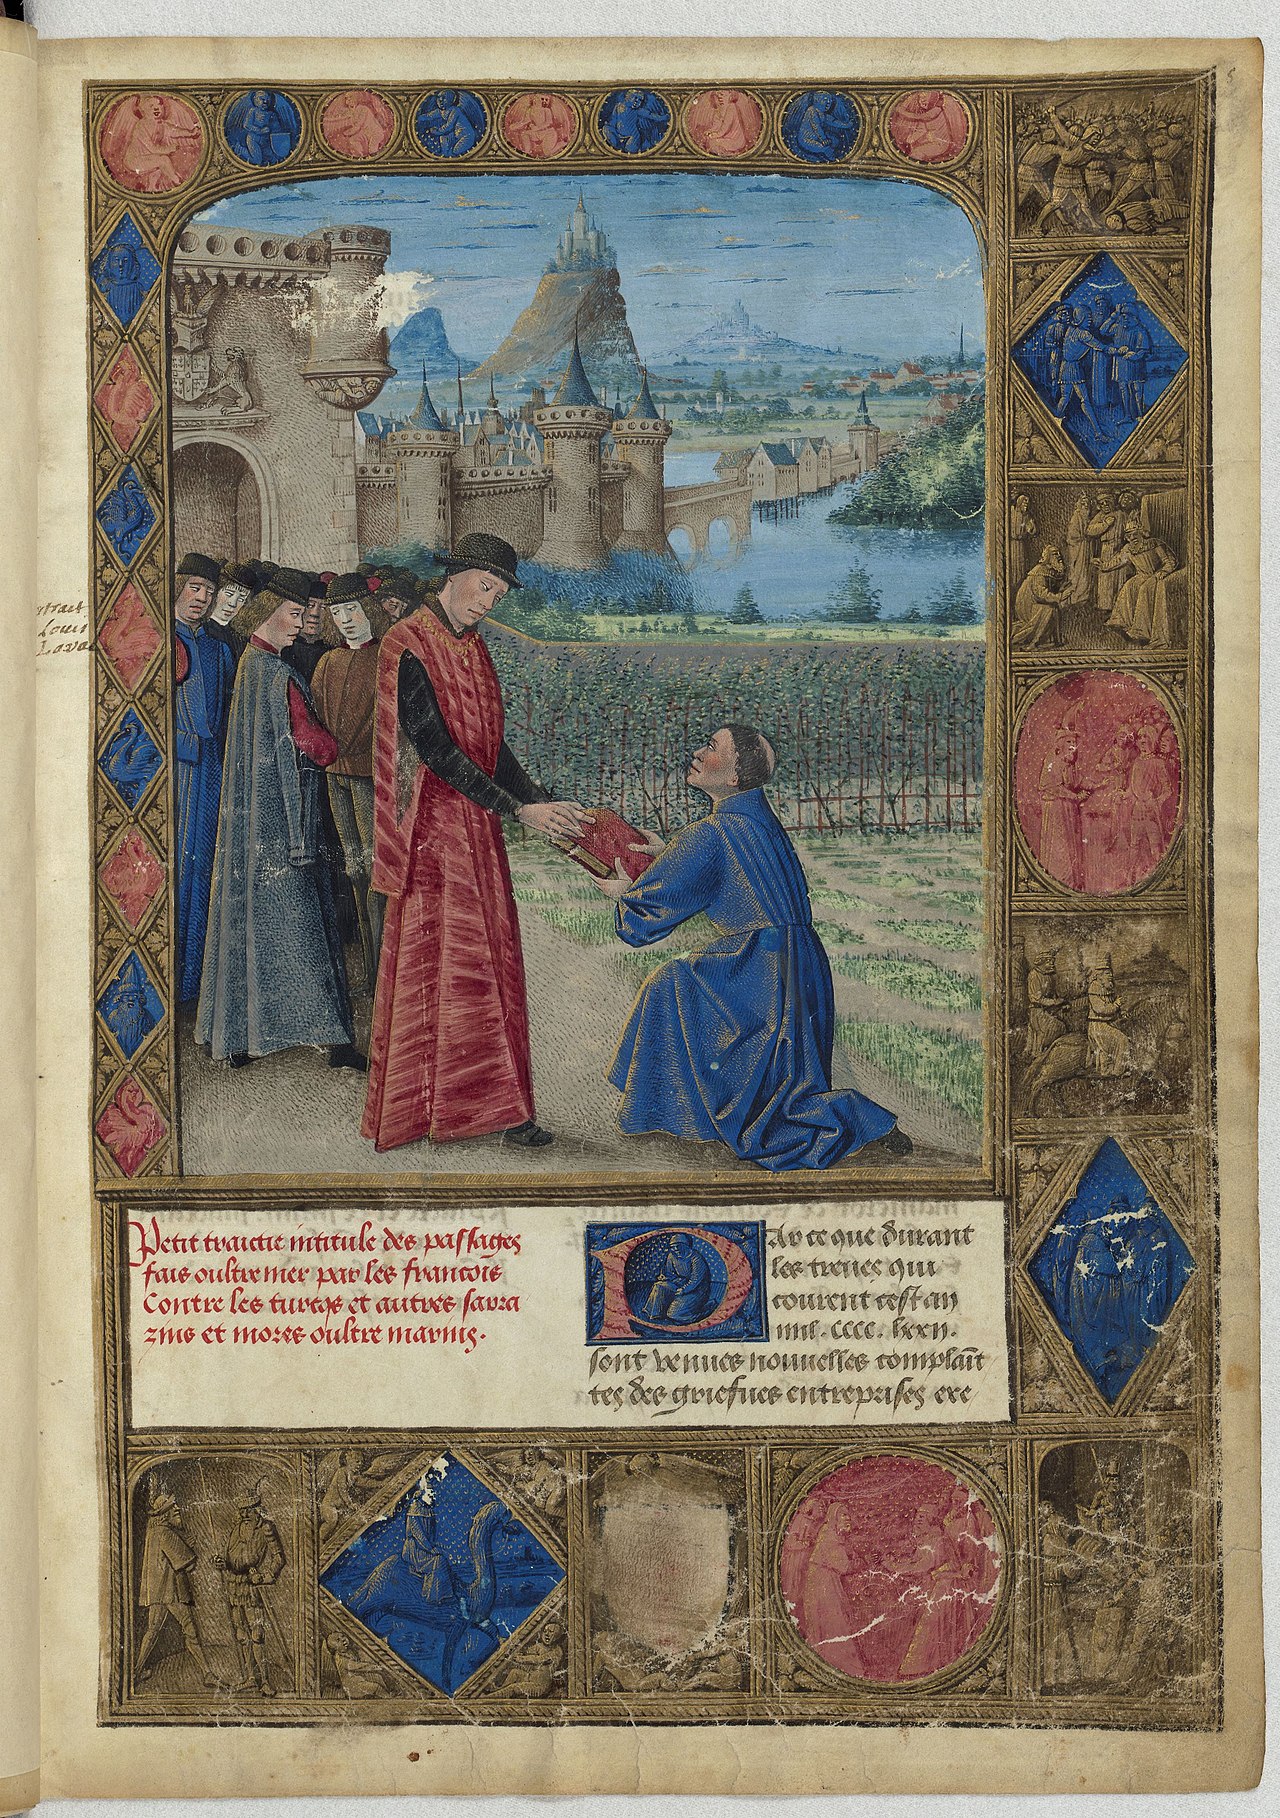 5
Petit traictie intitule des passages
fais oultre mer par les francois
Contre les turcqs et autres sarra
zins et mores oultre marins.
Par ce que durant
les treues qui
courent cest an
mil. cccc. lxxii.
sont venues nouuelles complain
tes des griefues entreprises exe
Louis